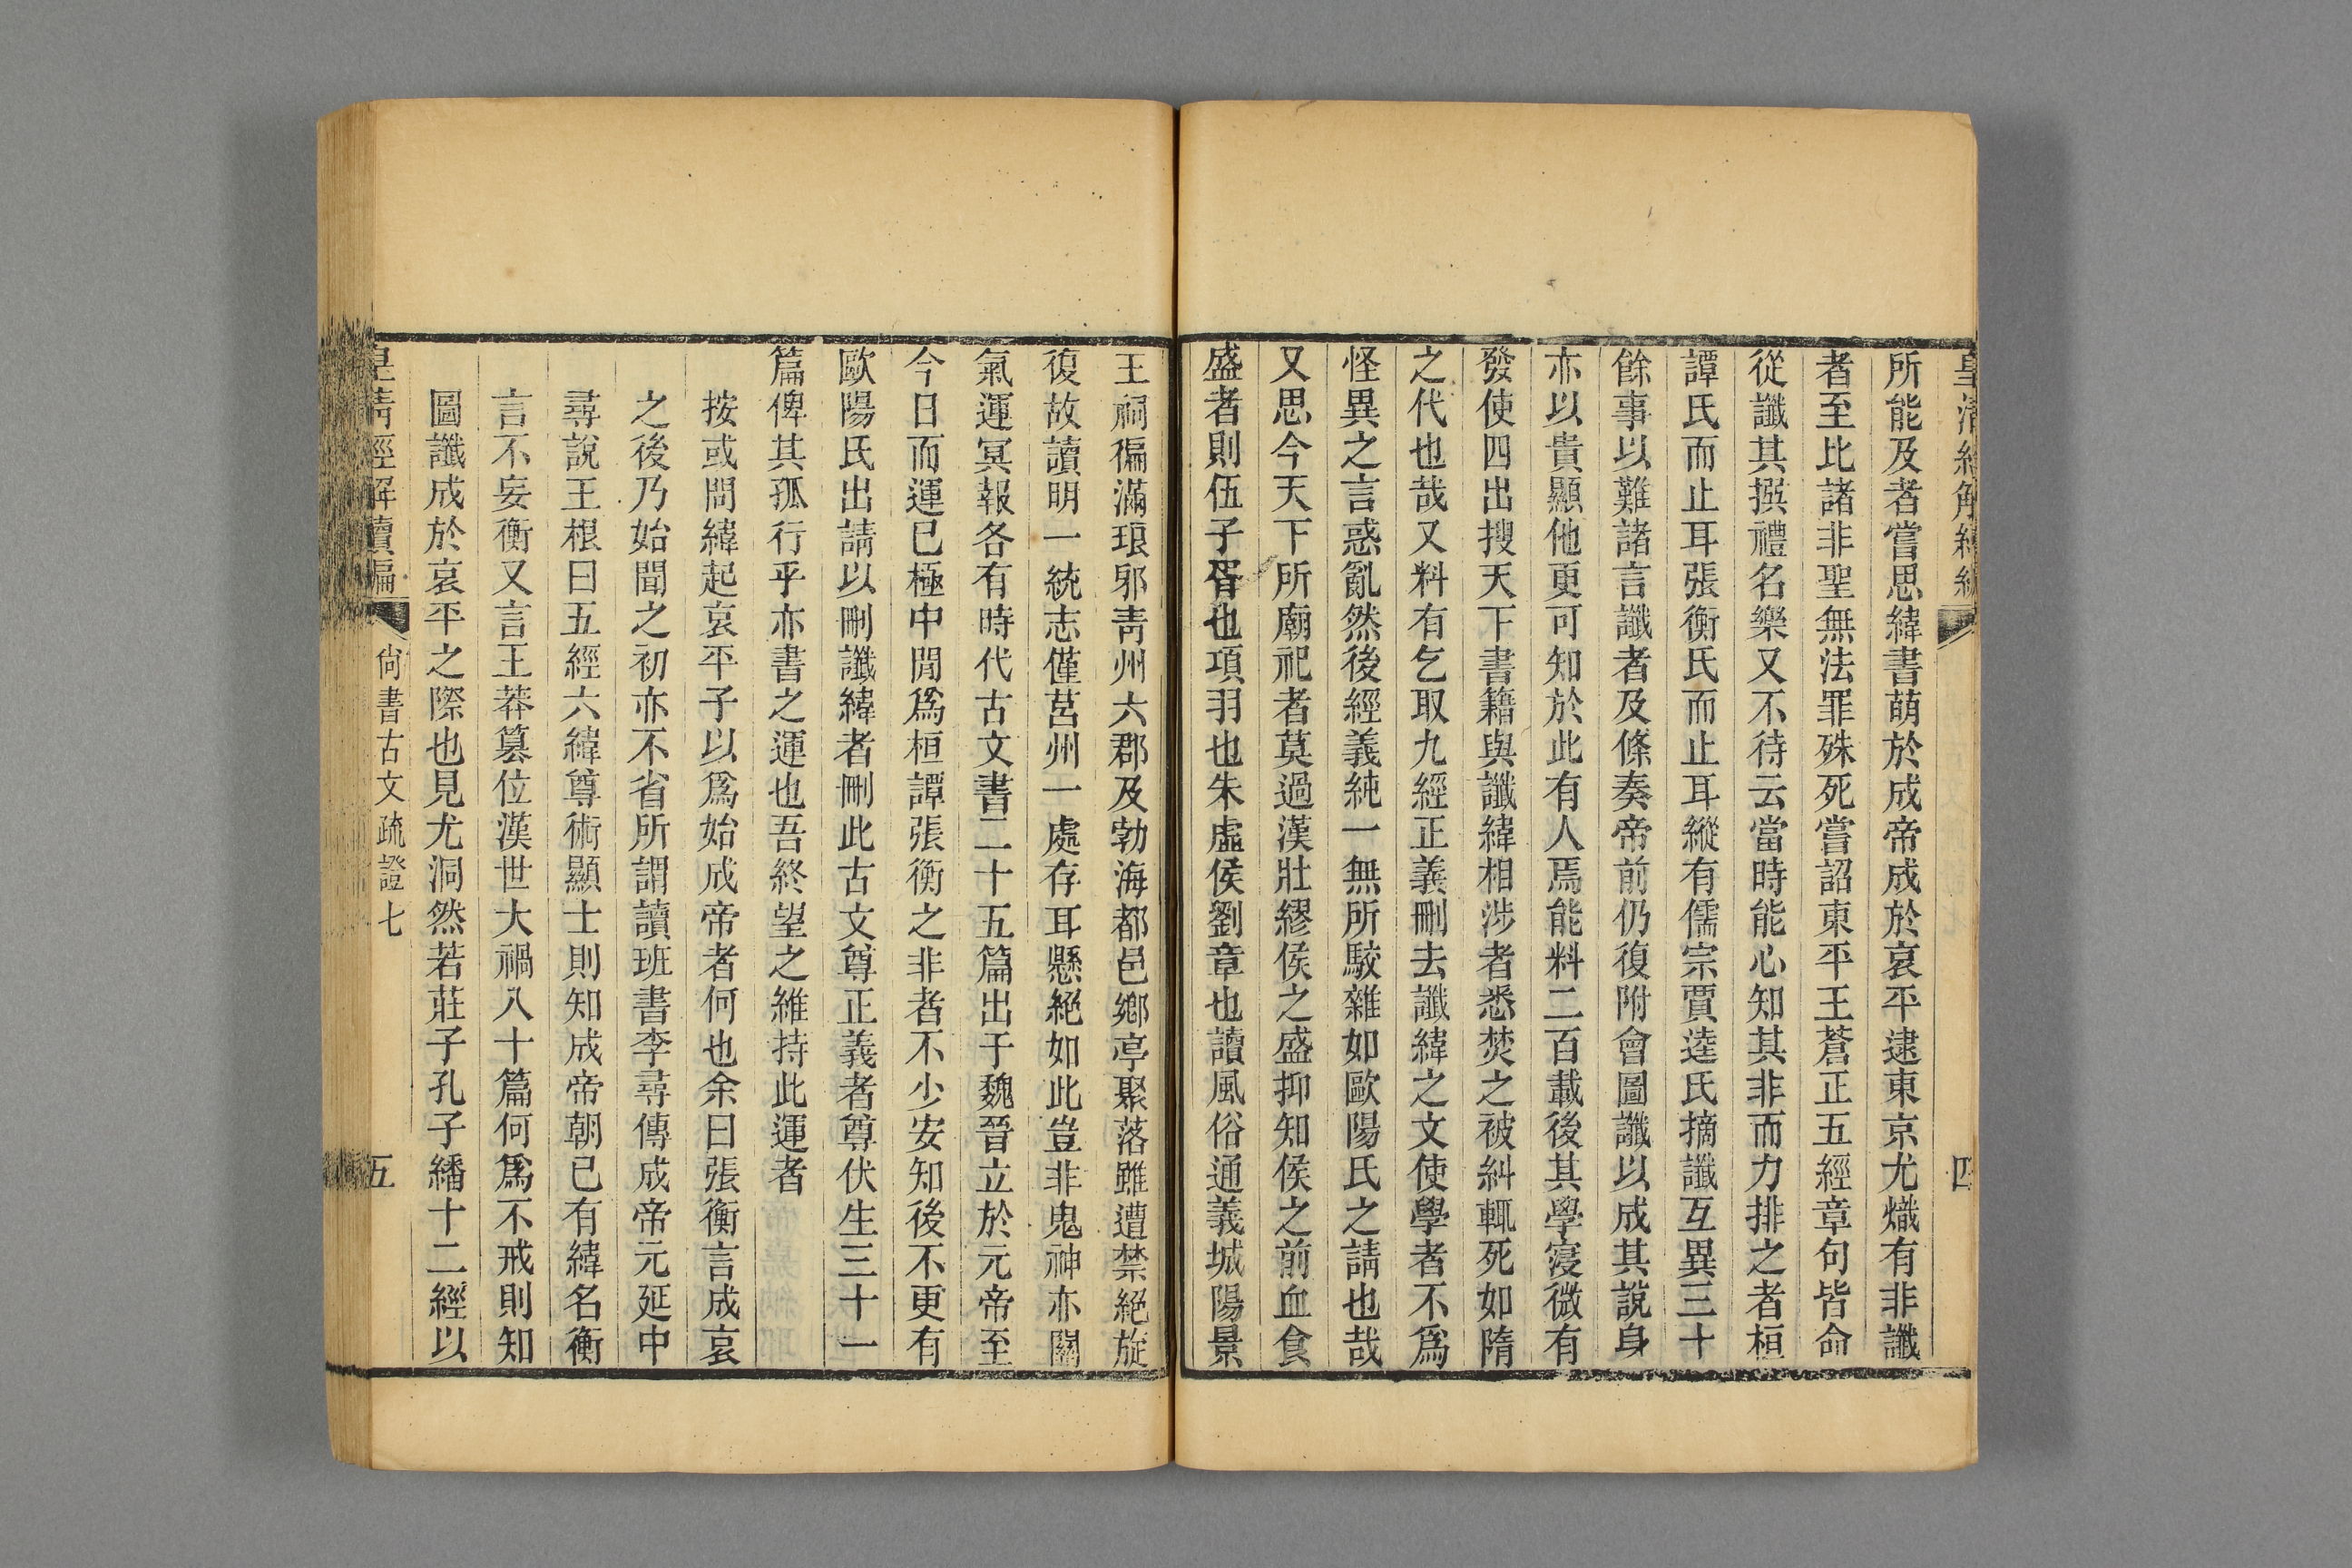 皇清經解續編
四
所能及者嘗思緯書萌於成帝成於哀平逮東京尤熾有非讖
者至比諸非聖無法罪殊死嘗詔東平王蒼正五經章句皆命
從讖其撰禮名樂又不待云當時能心知其非而力排之者桓
譚氏而止耳張衡氏而止耳縱有儒宗賈逵氏摘讖互異三十
餘事以難諸言讖者及條奏帝前仍復附會圖讖以成其說身
亦以貴顯他更可知於此有人焉能料二百載後其學寖微有
發使四出搜天下書籍與讖緯相涉者悉焚之被糾輒死如隋
之代也哉又料有乞取九經正義刪去讖緯之文使學者不爲
怪異之言惑亂然後經義純一無所駁雜如歐陽氏之請也哉
又思今天下所廟祀者莫過漢壯繆侯之盛抑知侯之前血食
盛者則伍子胥也項羽也朱虛侯劉章也讀風俗通義城陽景
王祠徧滿琅邪靑州六郡及勃海都邑鄉亭聚落雖遭禁絕旋
復故讀明一統志僅莒州一處存耳懸絕如此豈非鬼神亦關
氣運冥報各有時代古文書二十五篇出于魏晉立於元帝至
今日而運已極中閒爲桓譚張衡之非者不少安知後不更有
歐陽氏出請以刪讖緯者刪此古文尊正義者尊伏生三十一
篇俾其孤行乎亦書之運也吾終望之維持此運者
按或問緯起哀平子以爲始成帝者何也余曰張衡言成哀
之後乃始聞之初亦不省所謂讀班書李尋傳成帝元延中
尋說王根曰五經六緯尊術顯士則知成帝朝已有緯名衡
言不妄衡又言王莽篡位漢世大禍八十篇何爲不戒則知
圖讖成於哀平之際也見尤洞然若莊子孔子繙十二經以
皇清經解續編
尙書古文疏證七
五